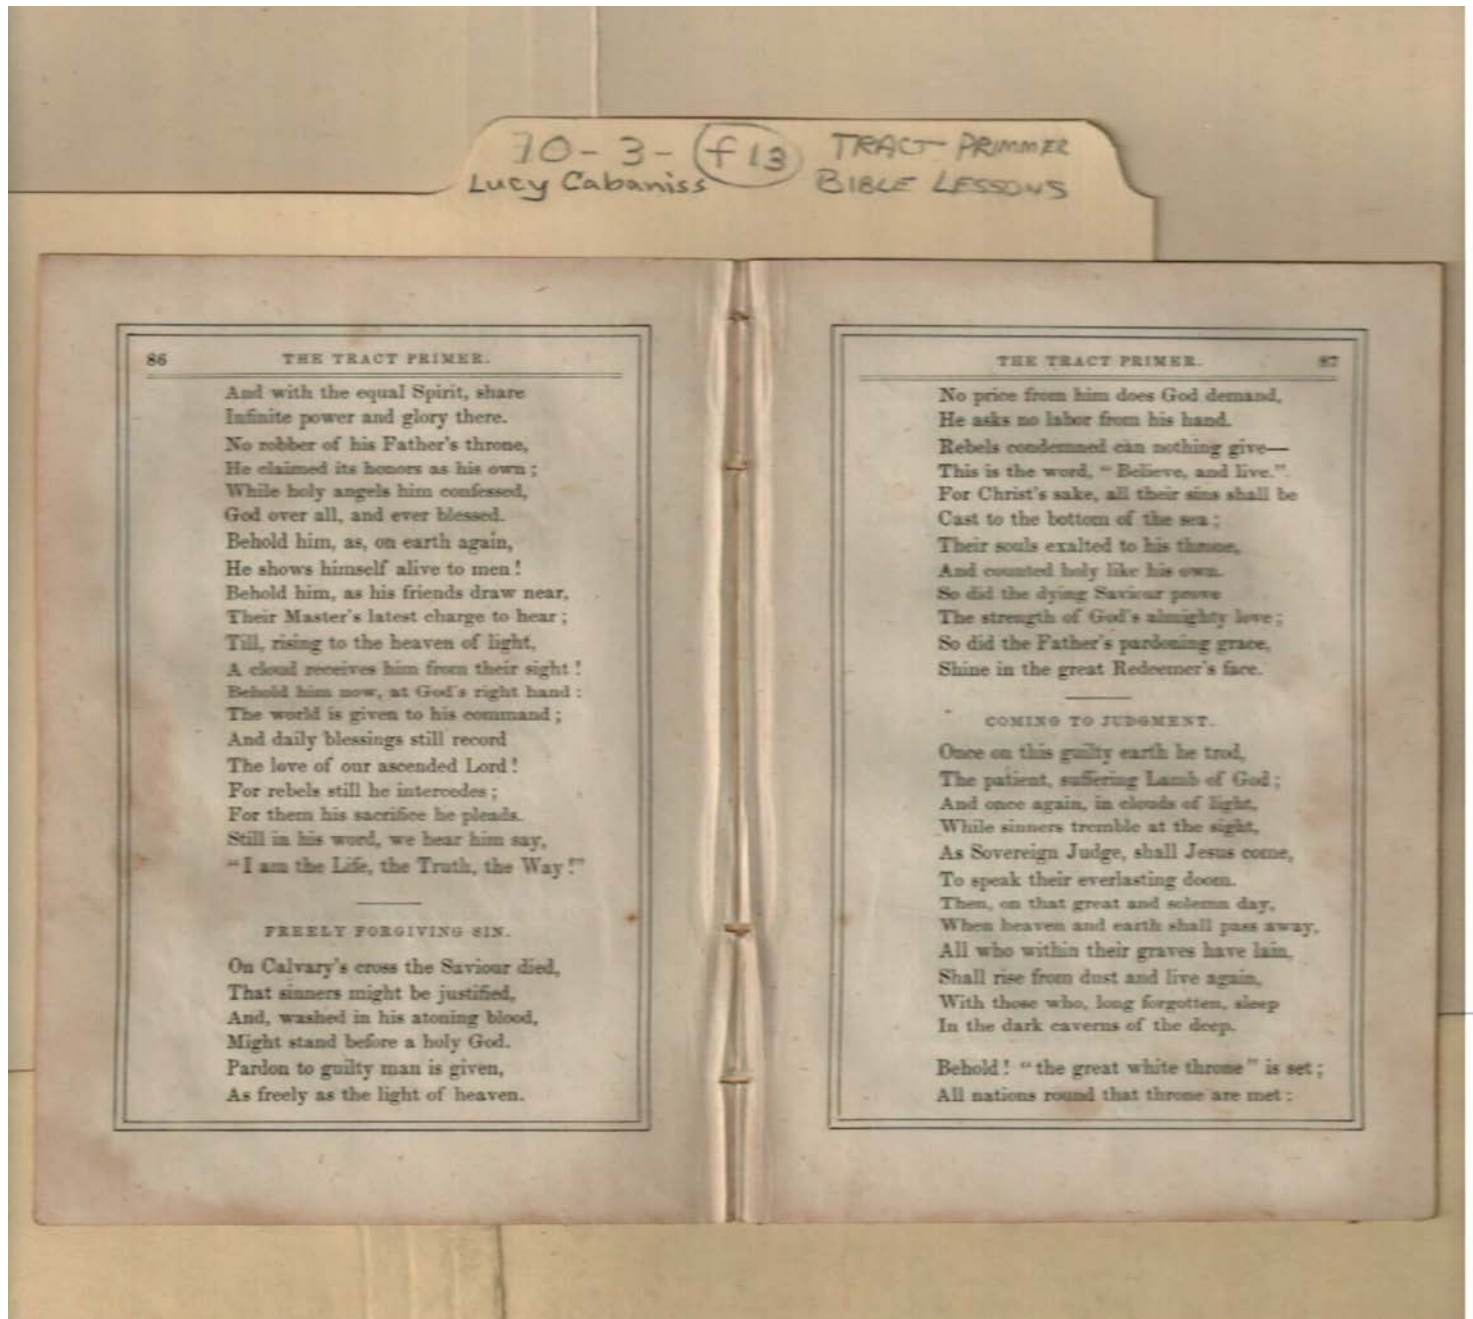 70-3-f13 TRACT PRIMMER
Lucy Cabaniss BIBLE LESSONS
86 THE TRACT PRIMER.
And with the equal Spirit, share
Infinite power and glory there.
No robber of his Father's throne,
He claimed its honors as his own;
While holy angels him confessed,
God over all, and ever blessed.
Behold him, as, on earth again,
He shows himself alive to men!
Behold him, as his friends draw near,
Their Master's latest charge to hear;
Till, rising to the heaven of light,
A cloud receives him from their sight!
Behold him now, at God's right hand:
The world is given to his command;
And daily blessings still record
The love of our ascended Lord!
For rebels still he intercedes;
For them his sacrifice he pleads.
Still in his word, we hear him say,
"I am the Life, the Truth, the Way!"
FREELY FORGIVING SIN.
On Calvary's cross the Saviour died,
That sinners might be justified,
And, washed in his atoning blood,
Might stand before a holy God.
Pardon to guilty man is given,
As freely as the light of heaven.
THE TRACT PRIMER. 87
No price from him does God demand,
He asks no labor from his hand.
Rebels condemned can nothing give—
This is the word, "Believe, and live."
For Christ's sake, all their sins shall be
Cast to the bottom of the sea;
Their souls exalted to his throne,
And counted holy like his own.
So did the dying Saviour prove
The strength of God's almighty love;
So did the Father's pardoning grace,
Shine in the great Redeemer's face.
COMING TO JUDGMENT.
Once on this guilty earth he trod,
The patient, suffering Lamb of God;
And once again, in clouds of light,
While sinners tremble at the sight,
As Sovereign Judge, shall Jesus come,
To speak their everlasting doom.
Then, on that great and solemn day,
When heaven and earth shall pass away,
All who within their graves have lain,
Shall rise from dust and live again,
With those who, long forgotten, sleep
In the dark caverns of the deep.
Behold! "the great white throne" is set;
All nations round that throne are met: